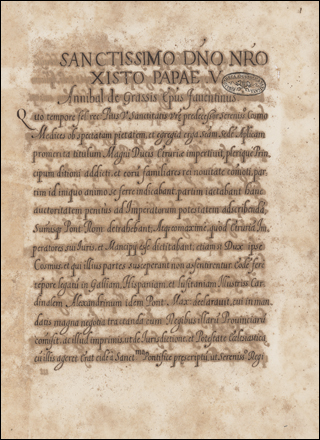 1
SANCTISSIMO DNO NRO
XISTO PAPAE V
Annibal de Grassis Epus Faventinus
Quo tempore fel. rec. Pius V. Sanctitatis Vrę predecessor sereniss. Cosmo
Medices ob spectatam pietatem, et egregia erga Sedem
promerita titulum Magni Ducis Etruriæ impertivit, plerique Prin-
cipum ditioni addicti, et eoru familiares rei novitate comoti, par-
tim id iniquo animo se ferre indicabant, partim iactabant hanc
autoritatem penitus ad Imperatorum potestatem adscribendã
Summisq Pont. Rom. detrahebant, Atque maxime, quod Etruria Im-
peratoris sui Iuris, et Mancipij esse dictitabant, etiamsi Dux ipse
Cosmus et qui illius partes susceperant non assentirentur. Eodẽ fere
tempore legati in Galliam, Hispaniam, et lusitaniam Illustriss. Car-
dinalem Alexandrinum idem Pont. Max. declaravit, cui in man-
datis magna negotia tractanda cum Regibus illarũ Provinciarũ
comisit, ac illud imprimis, ut de Iurisdictione, et Potestate Ecclesiastica
cũ illis ageret. Erat eidẽ a Sanct.mo Pontifice prescriptũ, ut Sereniss. Regi